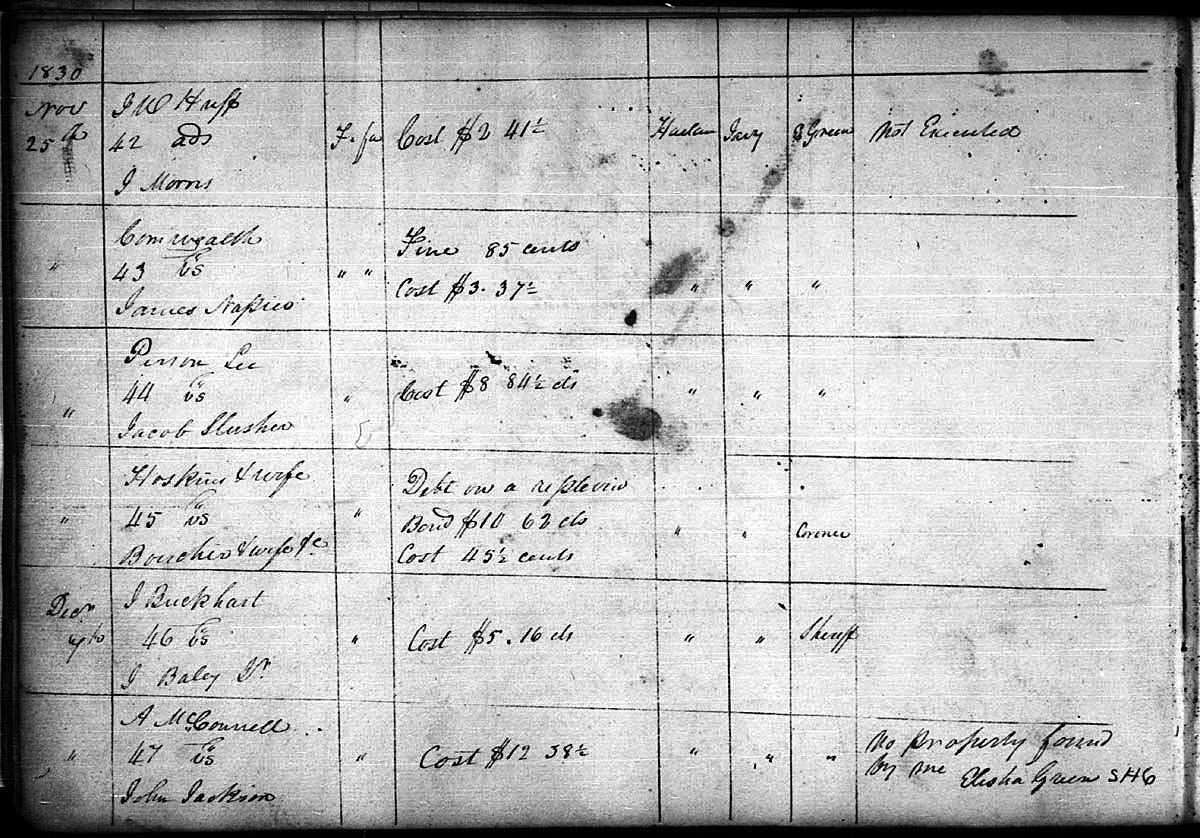 1830
Nov 25th
J W Huff
42 ads
J Morris
Fi fa
Cost $2 41½
Harlan
Davy
E Green
Not Executed
"
Comwealth
43 vs
James Napier
" "
Fine 85 cents
Cost $3. 37½
" " "
"
Perron Lee
44 vs
Jacob Slusher
"
Cost $8 84½ cts
" " "
"
Hoskins & wife
45 vs
Boucher & wife &c
"
Debt on a replevin
Bond $10 62 cts
Cost 45½ cents
" " Coroner
Decr 7th
J Buckhart
46 vs
J Baley Jr
"
Cost $5. 16 cts
" " Sheriff
"
A McConnell
47 vs
John Jackson
"
Cost $12 38½
" " "
No Property found
by me Elisha Green SHC